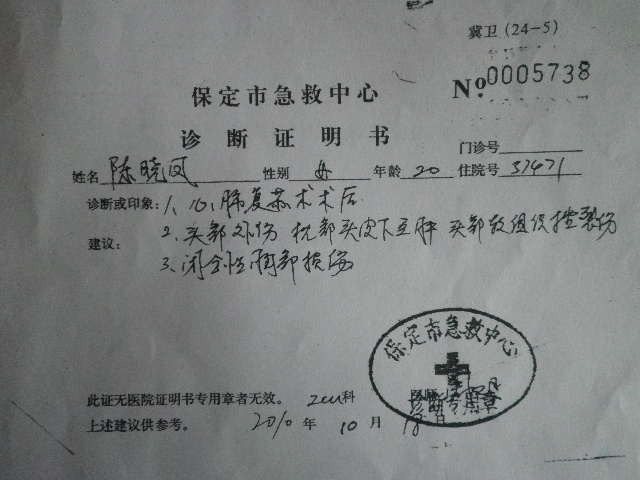 冀卫(24-5)
Nº 0005738
保定市急救中心
诊断证明书
门诊号
姓名 陈晓凤 性别 女 年龄 20 住院号 37471
诊断或印象: 1、心、肺复苏术术后
2、头部外伤 枕部头皮下血肿 头部软组织挫裂伤
建议:
3、闭合性胸部损伤
保定市急救中心
诊断专用章
此证无医院证明书专用章者无效。 科
上述建议供参考。 2010 年 10 月 18 日